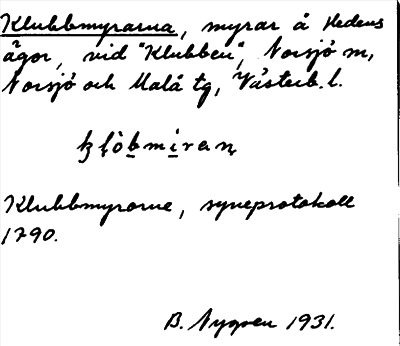 Klubbmyrarna, myrar å Hedens
ägor, vid "Klubben", Norsjö sn,
Norsjö och Malå tg, Västerb. l.
ķḷòb̲mi̲ran̥
Klubbmyrorne, syneprotokoll
1790.
B. Nygren 1931.